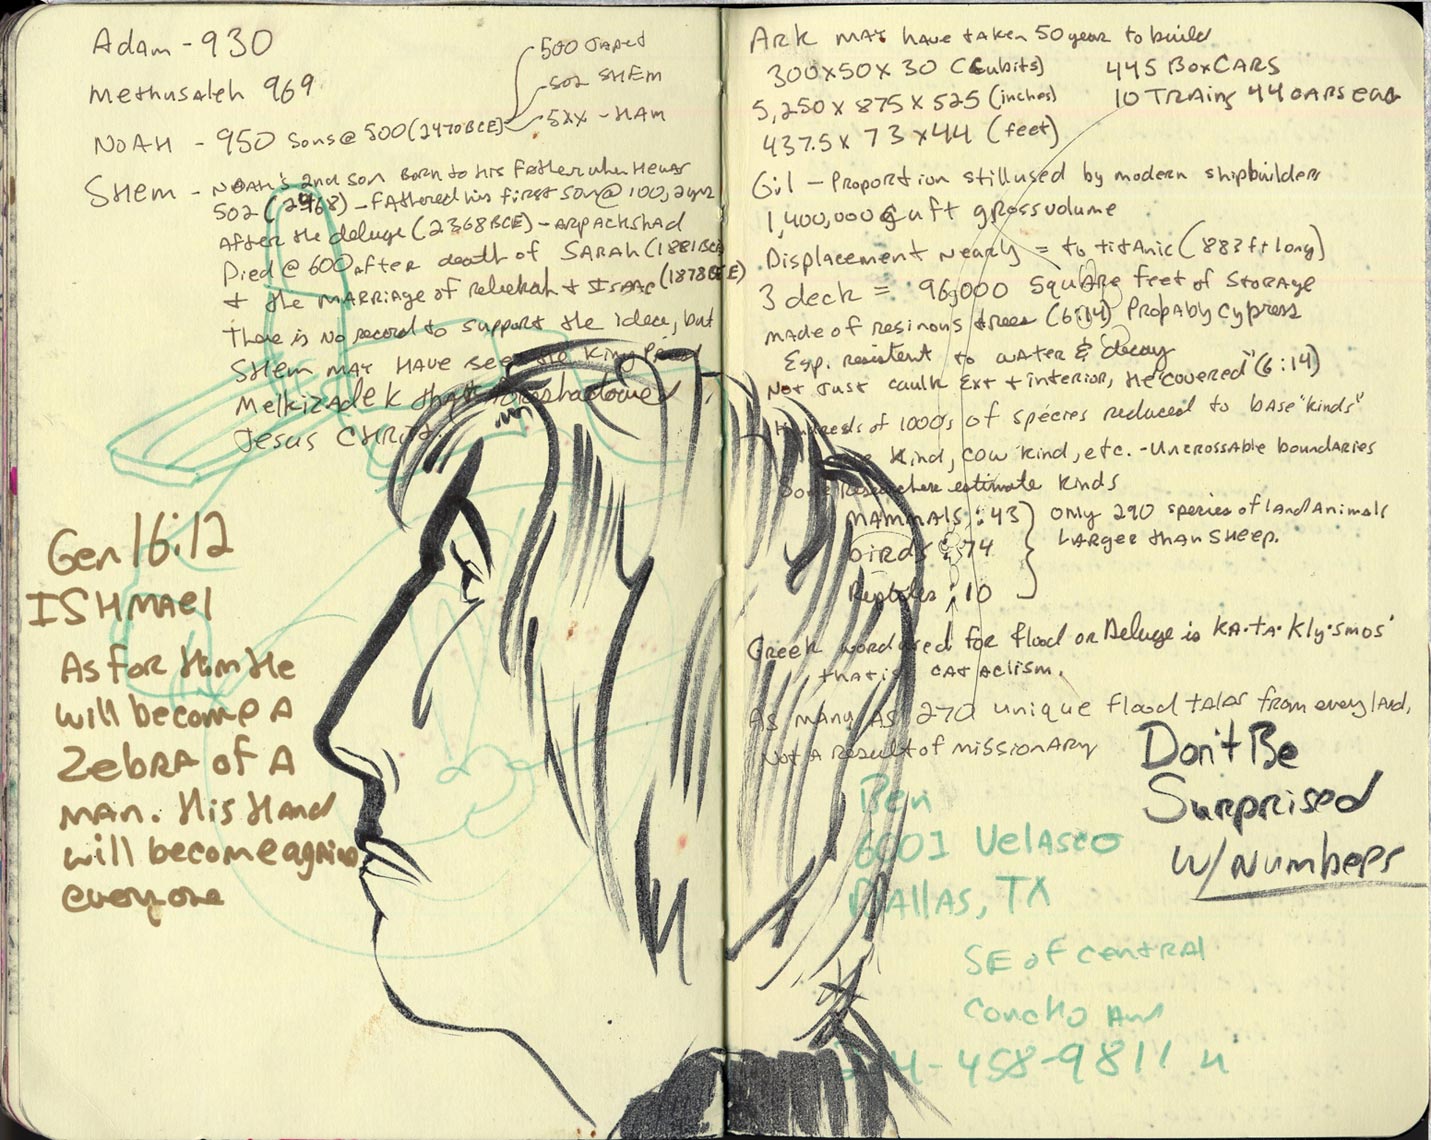 Adam - 930
Methusaleh 969
NOAH - 950 Sons @ 500 (2470 BCE)
500 Japed
502 SHEM
5XX - HAM
SHEM - NOAH'S 2nd son Born to His Father when He was
502 (2468) - Fathered his first son @ 100, 2 yrs
After the deluge (2368 BCE) - ARPACKSHAD
Died @ 600 after death of SARAH (1881 BCE)
+ the MARRIAGE of Rebekah + ISAAC (1878 BCE)
There is no record to support the idea, but
SHEM MAY HAVE been the King Priest
Melkizadek that foreshadowed
Jesus CHRIST.
Gen 16:12
ISHMAEl
As for Him He
will become A
Zebra of A
man. His Hand
will become against
everyone
Ark may have taken 50 year to build
300 x 50 x 30 (Cubits)
5,250 x 875 x 525 (inches)
437.5 x 73 x 44 (feet)
445 BoxCARS
10 TRAins 44 CARS each
6:1 - Proportion still used by modern shipbuilders
1,400,000 cu ft gross volume
Displacement nearly = to titanic (883 ft long)
3 deck = 96,000 square feet of storage
made of resinous trees (6:14) Propably cypress
Esp. resistent to water & decay
Not Just caulk Ext + interior, He "covered" (6:14)
Hundreds of 1000s of species reduced to base "kinds"
Kind, cow kind, etc. - Uncrossable boundaries
Some researchers estimate kinds
MAMMALS : 43
birds : 74
Reptiles : 10
only 290 species of land Animals
LARger than Sheep.
Greek word used for flood or Deluge is KA·tA·Kly·smos'
that is CATAclism.
As many As 270 unique flood tales from every land,
Not A result of missionary
Don't Be
Surprised
w/ Numbers
Ben
6001 Velasco
Dallas, TX
SE of central
Concho And
214-458-9811